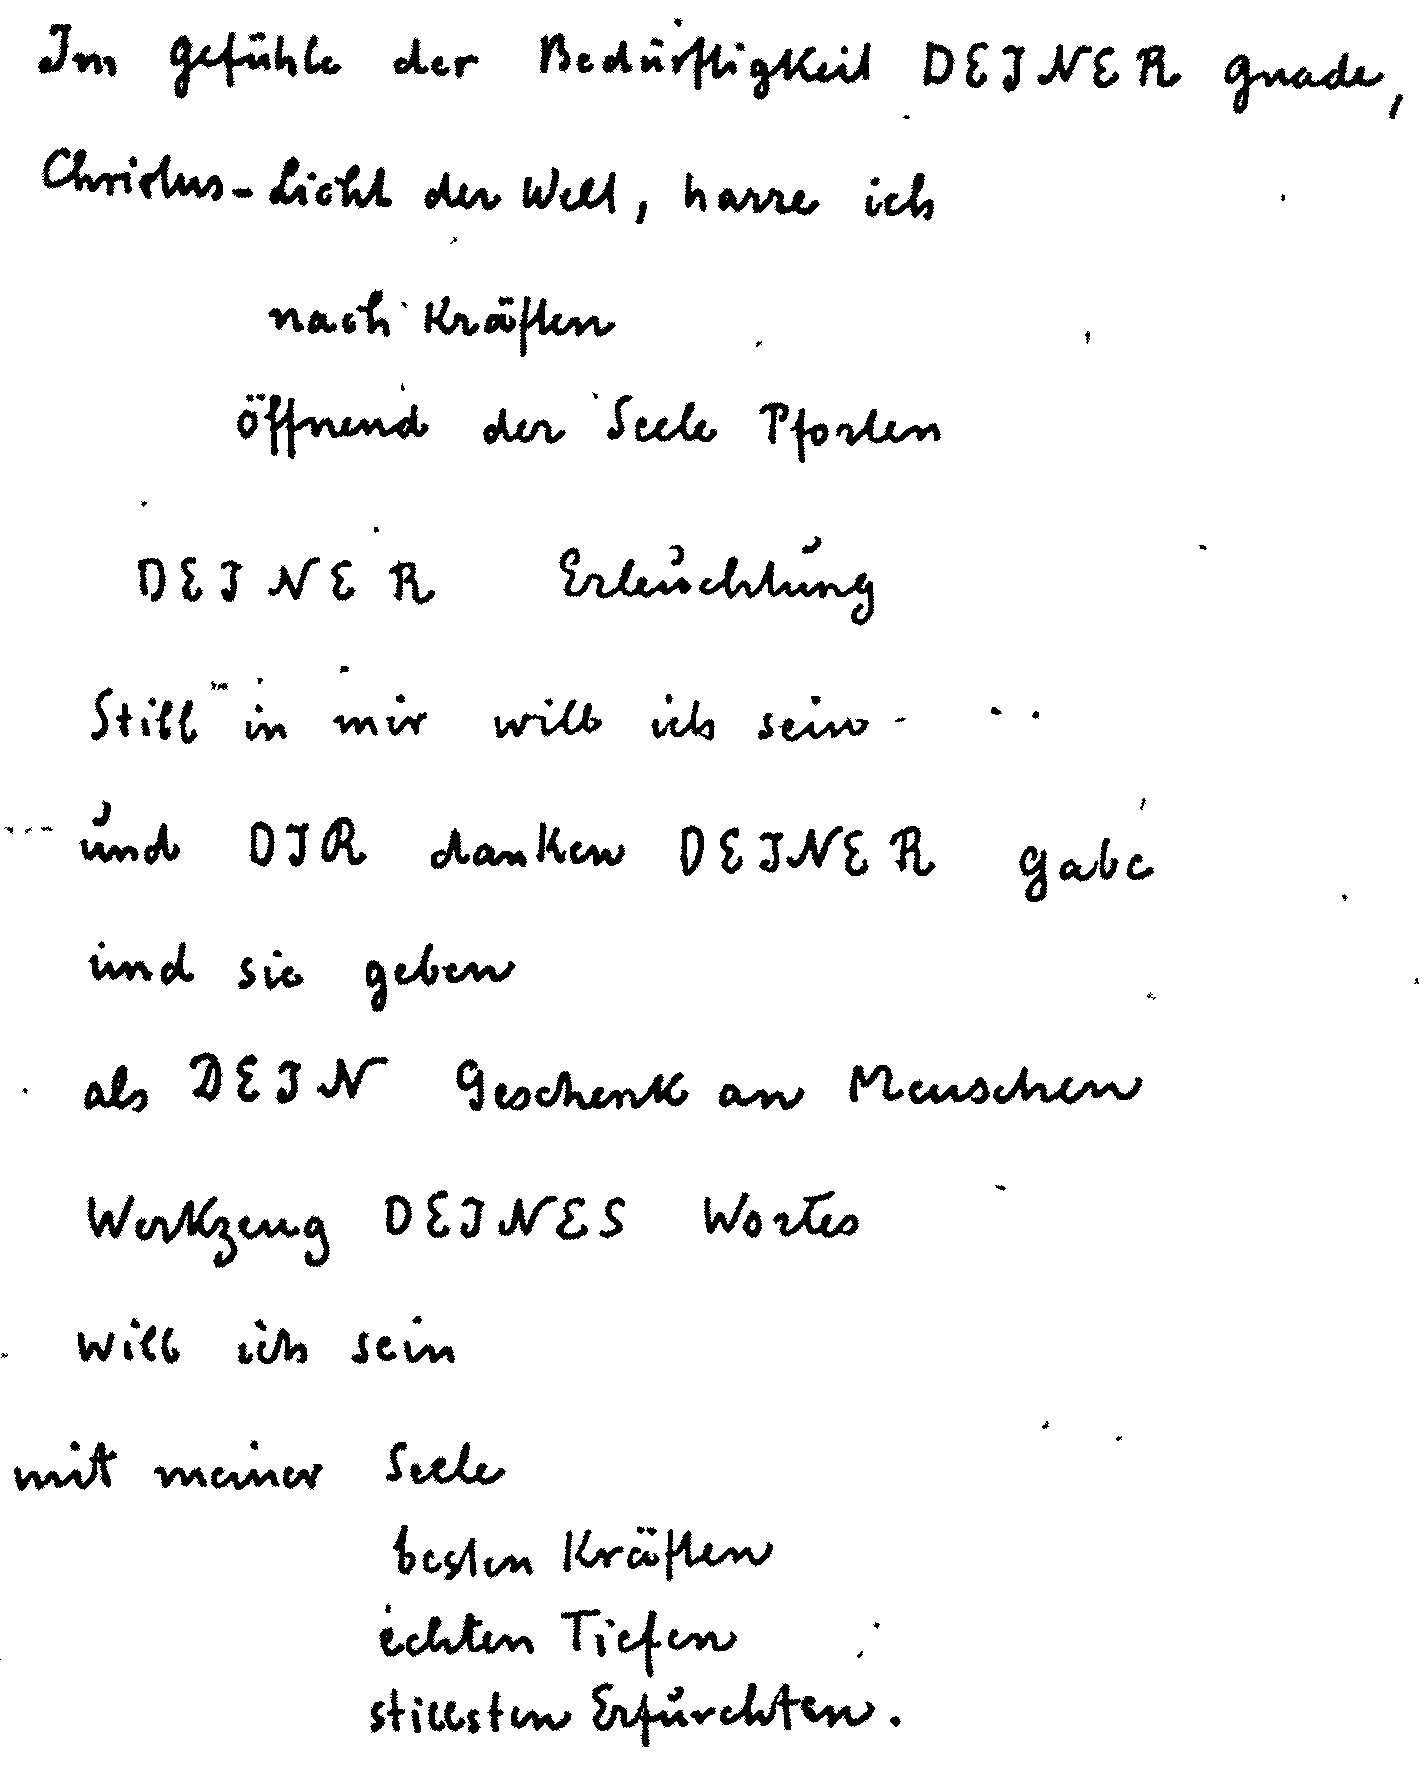 Im Gefühle der Bedürftigkeit DEINER Gnade,
Christus-Licht der Welt, harre ich
nach Kräften
öffnend der Seele Pforten
DEINER Erleuchtung
Still in mir will ich sein
und DIR danken DEINER Gabe
und sie geben
als DEIN Geschenk an Menschen
Werkzeug DEINES Wortes
will ich sein
mit meiner Seele
besten Kräften
echten Tiefen
stillsten Erfürchten.